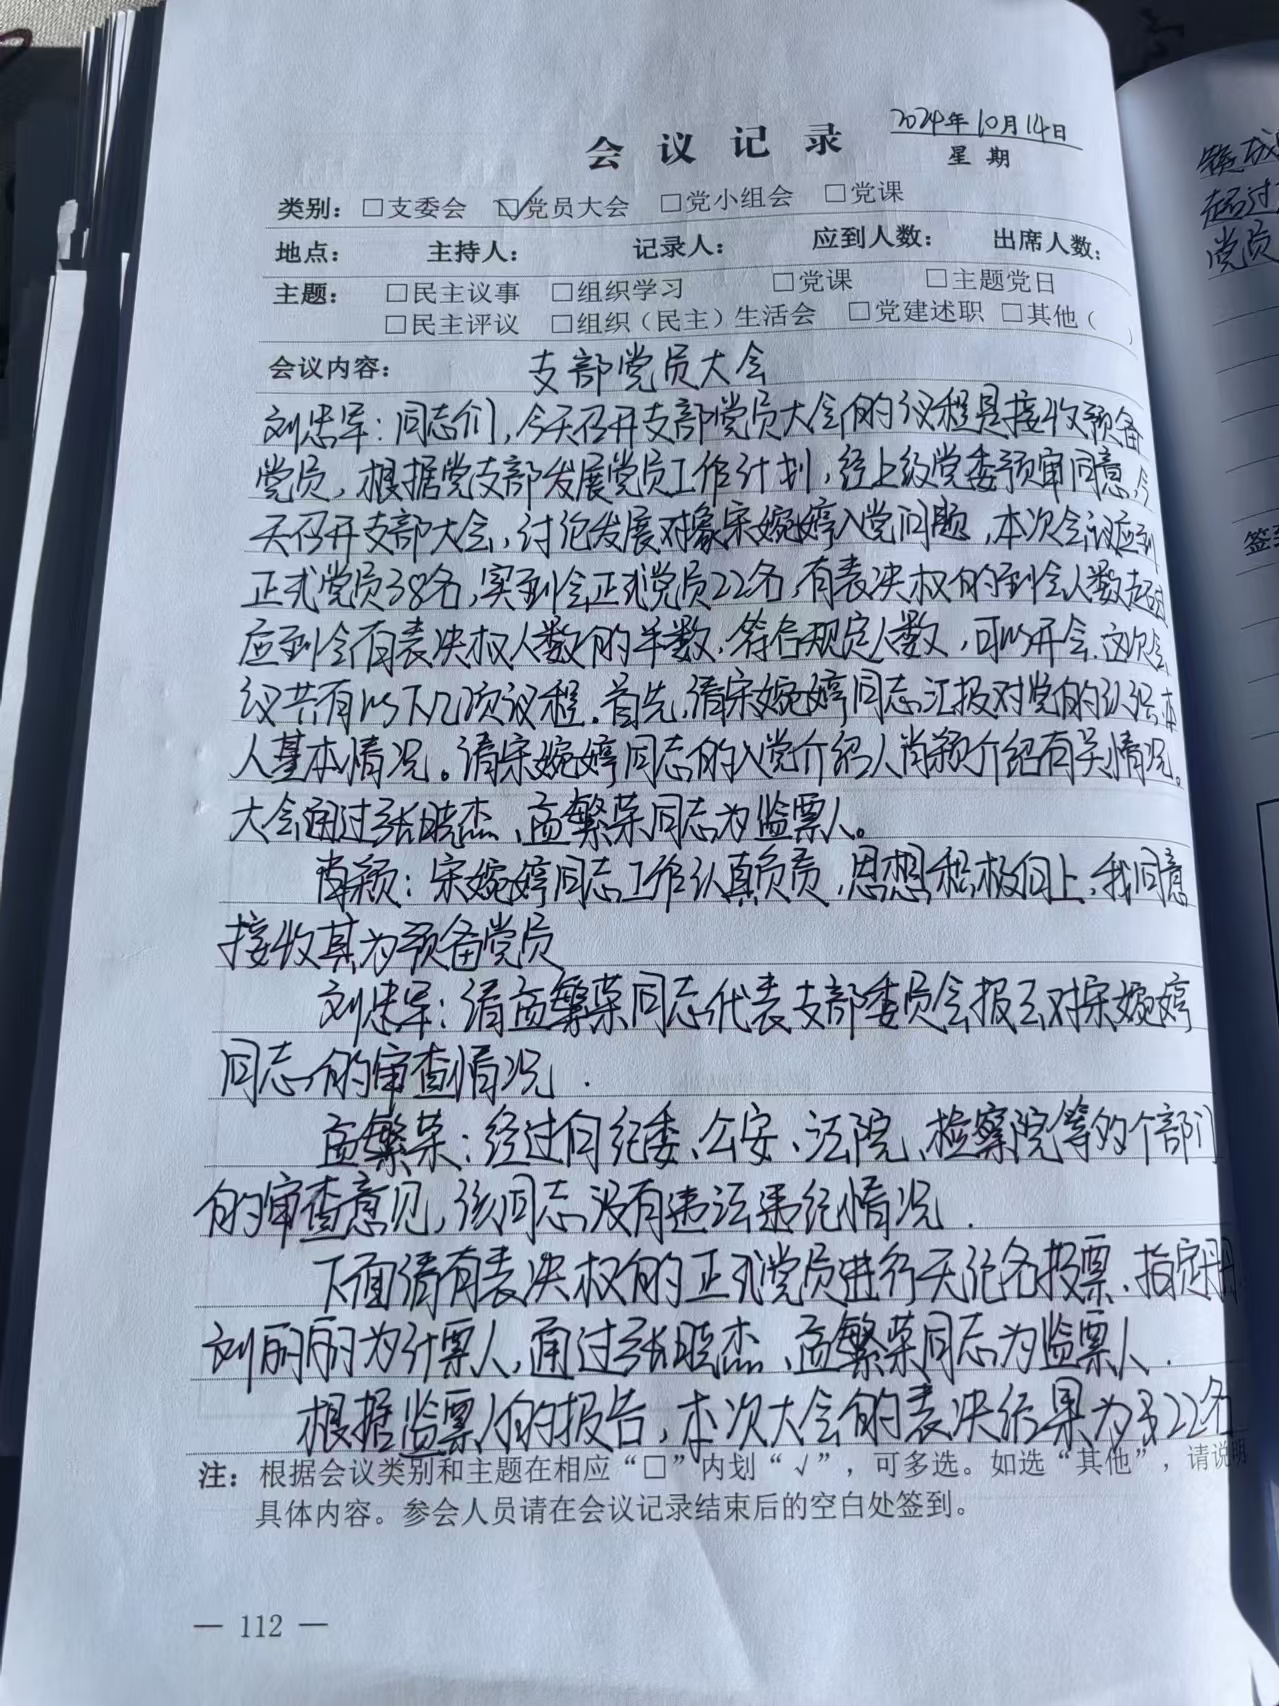 2024年10月14日
会议记录
星期
类别：□支委会 ☑党员大会 □党小组会 □党课
地点： 主持人： 记录人： 应到人数： 出席人数：
主题： □民主议事 □组织学习 □党课 □主题党日
□民主评议 □组织（民主）生活会 □党建述职 □其他（ ）
会议内容： 支部党员大会
刘忠军：同志们，今天召开支部党员大会的议程是接收预备
党员，根据党支部发展党员工作计划，经上级党委预审同意，今
天召开支部大会，讨论发展对象宋婉婷入党问题，本次会议应到
正式党员38名，实到会正式党员22名，有表决权的到会人数超过
应到会有表决权人数的半数，符合规定人数，可以开会。这次会
议共有以下几项议程。首先，请宋婉婷同志汇报对党的认识，本
人基本情况。请宋婉婷同志的入党介绍人肖颖介绍有关情况。
大会通过张晓杰、孟繁荣同志为监票人。
肖颖：宋婉婷同志工作认真负责，思想积极向上，我同意
接收其为预备党员
刘忠军：请孟繁荣同志代表支部委员会报告对宋婉婷
同志的审查情况．
孟繁荣：经过向纪委、公安、法院、检察院等的个部门
的审查意见，该同志没有违法违纪情况．
下面请有表决权的正式党员进行无记名投票，指定
刘丽丽为计票人，通过张晓杰、孟繁荣同志为监票人．
根据监票人的报告，本次大会的表决结果为22名
注：根据会议类别和主题在相应“□”内划“√”，可多选。如选“其他”，请说明
具体内容。参会人员请在会议记录结束后的空白处签到。
— 112 —
超过
党员
签